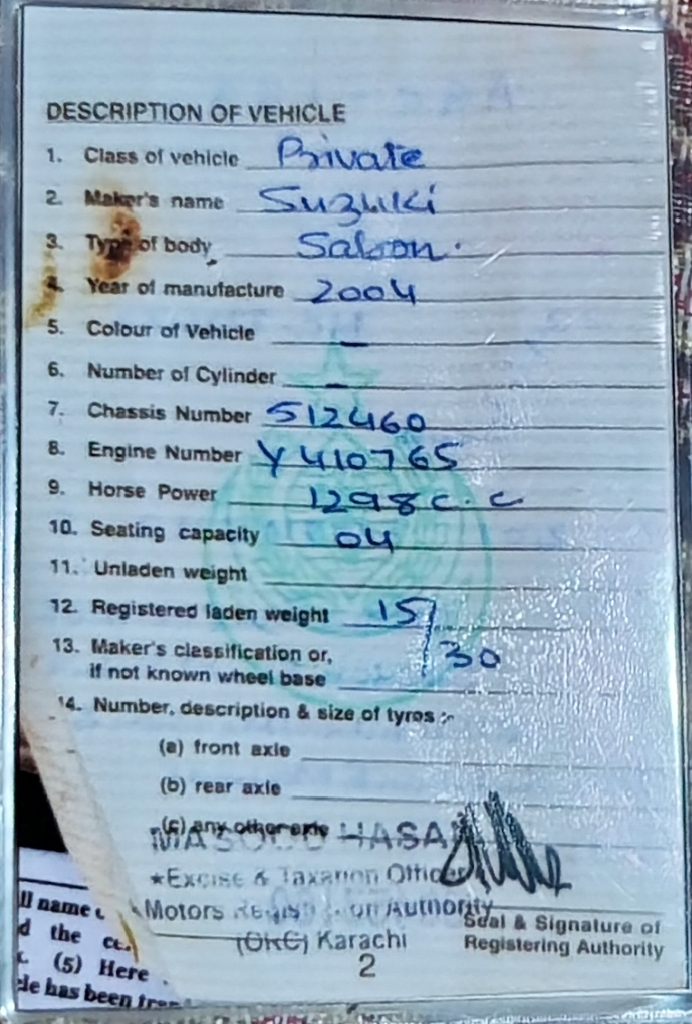 DESCRIPTION OF VEHICLE
1. Class of vehicle Private
2. Maker's name Suzuki
3. Type of body Saloon.
4. Year of manufacture 2004
5. Colour of Vehicle –
6. Number of Cylinder –
7. Chassis Number 512460
8. Engine Number Y410765
9. Horse Power 1298 c.c
10. Seating capacity 04
11. Unladen weight
12. Registered laden weight 15/30
13. Maker's classification or,
if not known wheel base
14. Number, description & size of tyros :-
(a) front axle
(b) rear axle
(c) any other axle
MASOOD HASAN
★Excise & Taxation Officer
Motors Registration Authority
Seal & Signature of
(OKC) Karachi
Registering Authority
2
ll name
d the
(5) Here
le has been